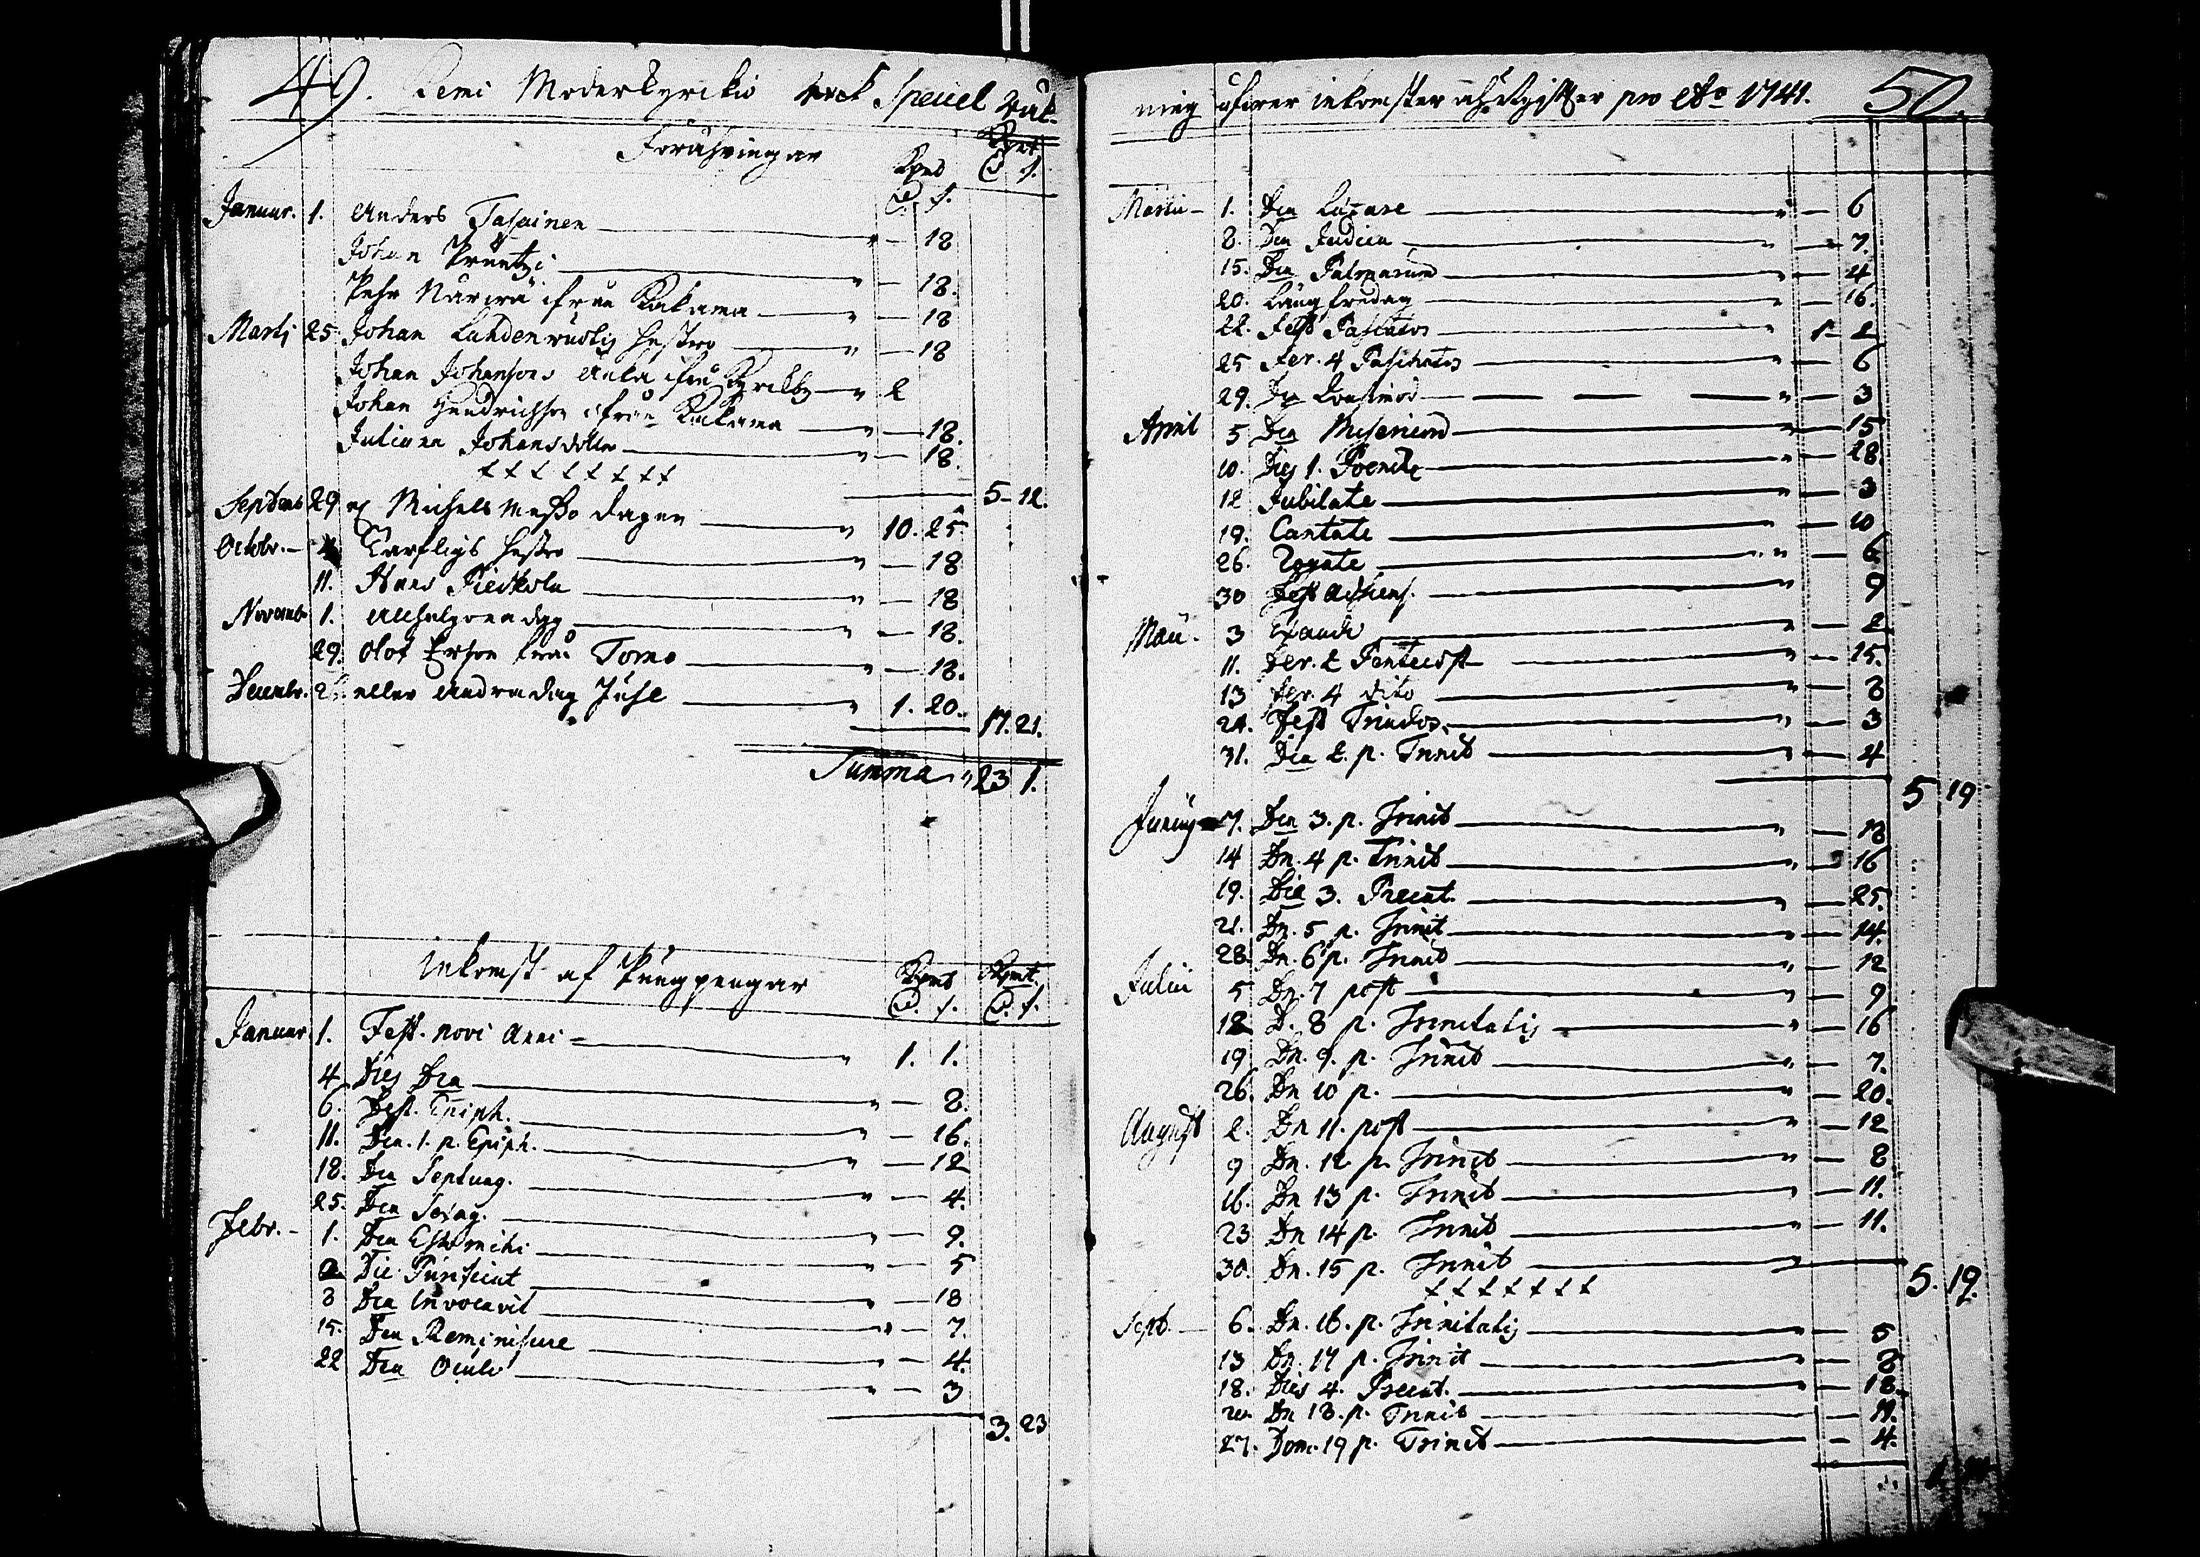 49. Kemi Moderkyrkio Speciel Räk-
Föräringar
Kpmt Kpmt
D. s. D. s.
Januar. 1. Anders " — 18
Johan " — 18.
Pehr ifrån Kakama — " — 18
Martij 25 Johan Hustro — " — 18
Johan Johansons ifrån Kyrkby — " 2
Johan Hendrichson ifrån Kakama — " — 18.
Juliana Johansdotter — " — 18.
5 - 12.
Septemb 29 Michels Messo dagen — " 10. 25
Octobr. — Hustro — " — 18
11. Hans — " — 18
Novemb 1. Allhelgona dag — " — 18.
29. Olof Erson från Torne — " — 18.
Decembr. eller Andradag Juhl — " 1. 20.
17. 21.
Summa " 23 1.
Inkomst af Pungpengar Kpmt Kpmt
D. s. D. s.
Januar. 1. Fest. novi Anni — " 1. 1.
4 Dies Dca — " — 8.
6. Fest. Epiph. — " — 16.
11. Dca. 1. p. Epiph. — " — 12
18. Dca Septuag. — " — 4.
25. Dca Sexag. — " — 9.
Febr. — 1. Dca Estomihi — " — 5
2 Die Purificat — " — 18
8 Dca Invocavit — " — 7.
15. Dca Reminiscere — " — 4.
22 Dca Oculi — " — 3
3. 23
ning öfwer inkomster pro Ao 1741. 50.
Martii — 1. Dca Lætare — " — 6
8. Dca Judica — " — 7.
15. Dca Palmarum — " — 4
20. Långfredag — " — 16.
22. Fest Paschatos — " 1 - 2
25 Fer. 4 Paschatos — " — 6
29. Dca Quasimod — " — 3
April 5 Dca Misericord — " — 15
10. Dies 1. Poenit — " — 28.
12 Jubilate — " — 3
19. Cantate — " — 10
26. Rogate — " — 6
30 Fest Adscens. — " 9
Maii. 3 Exaudi — " — 2
11. Fer. 2 Pentecost — " — 15.
13 Fer. 4 dito — " — 8
24. Fest Trinitos. — " — 3
31. Dca 2. p. Trinit — " — 4
5 19
Junius 7. Dca 3. p. Trinit — " — 18
14 Dn. 4 p. Trinit — " 16
19. Die 3. Precat. — " — 25.
21. Dn. 5 p. Trinit — " — 14.
28. Dn. 6 p. Trinit — " — 12
Julii 5 Dn. 7 post — " — 9
12 D. 8 p. Trinitatis — " — 16
19 Dn. 9. p. Trinit — " — 7.
26. Dn 10 p. — " — 20.
August 2. Dn 11. post — " — 12
9 Dn. 12 p. Trinit — " — 8
16. Dn 13 p. Trinit — " — 11.
23 Dn 14 p. Trinit — " — 11.
30. Dn. 15 p. Trinit —
5. 19.
Sept. — 6. Dn. 16. p. Trinitatis — " — 5
13 Dn. 17 p. Trinit — " — 8
18. Dies 4. Precat. — " — 18.
20. Dn 18. p. Trinit — — 11.
27. Dom. 19 p. Trinit — — 4.